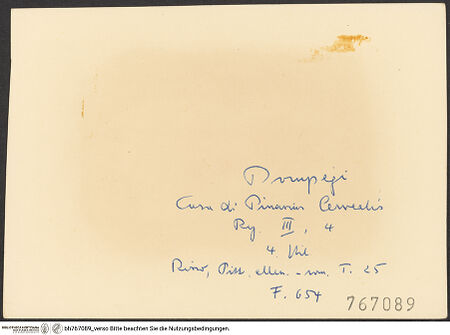 Pompeji
Casa di Pinarius Cerealis
Reg. III, 4
4. Stil
Rizzo, Pitt. ellen.-rom. T. 25
F. 654
767089
bh767089_verso Bitte beachten Sie die Nutzungsbedingungen.